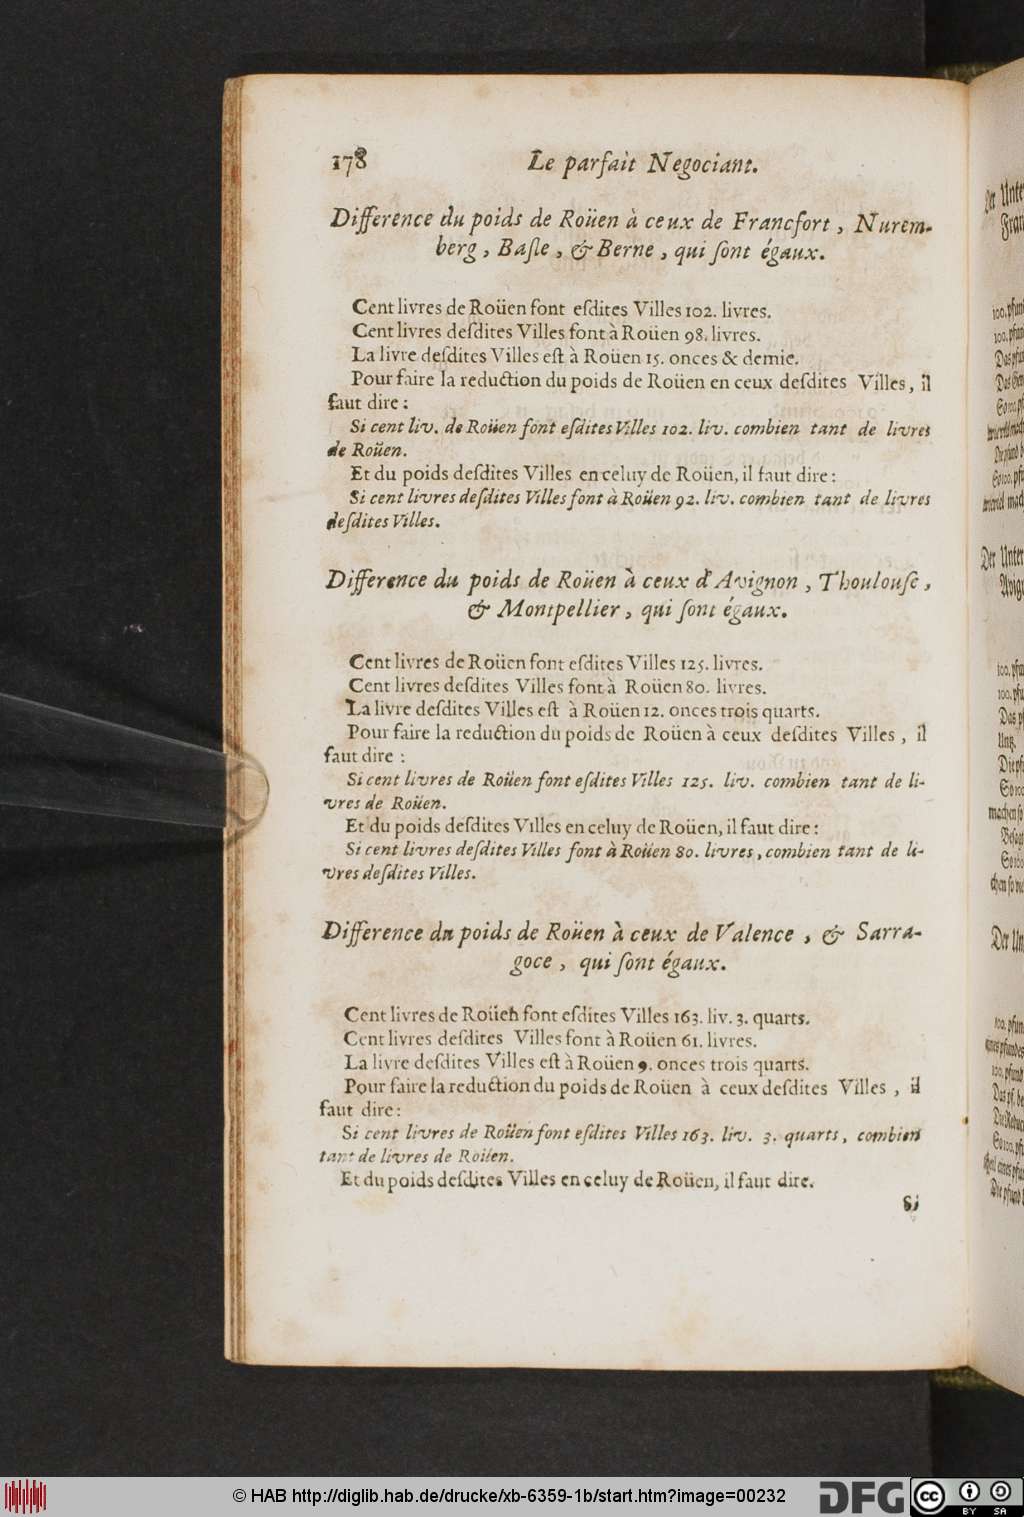 178 Le parfait Negociant.
Difference du poids de Roüen à ceux de Francfort, Nurem-
berg, Baſle, & Berne, qui ſont égaux.
Cent livres de Roüen font eſdites Villes 102. livres.
Cent livres deſdites Villes font à Roüen 98. livres.
La livre deſdites Villes eſt à Roüen 15. onces & demie.
Pour faire la reduction du poids de Roüen en ceux deſdites Villes, il
faut dire:
Si cent liv. de Roüen font eſdites Villes 102. liv. combien tant de livres
de Roüen.
Et du poids deſdites Villes en celuy de Roüen, il faut dire:
Si cent livres deſdites Villes font à Roüen 92. liv. combien tant de livres
deſdites Villes.
Difference du poids de Roüen à ceux d'Avignon, Thoulouſe,
& Montpellier, qui ſont égaux.
Cent livres de Roüen font eſdites Villes 125. livres.
Cent livres deſdites Villes font à Roüen 80. livres.
La livre deſdites Villes eſt à Roüen 12. onces trois quarts.
Pour faire la reduction du poids de Roüen à ceux deſdites Villes, il
faut dire :
Si cent livres de Roüen font eſdites Villes 125. liv. combien tant de li-
vres de Roüen.
Et du poids deſdites Villes en celuy de Roüen, il faut dire:
Si cent livres deſdites Villes font à Roüen 80. livres, combien tant de li-
vres deſdites Villes.
Difference du poids de Roüen à ceux de Valence, & Sarra-
goce, qui ſont égaux.
Cent livres de Roüen font eſdites Villes 163. liv. 3. quarts.
Cent livres deſdites Villes font à Roüen 61. livres.
La livre deſdites Villes eſt à Roüen 9. onces trois quarts.
Pour faire la reduction du poids de Roüen à ceux deſdites Villes, il
faut dire:
Si cent livres de Roüen font eſdites Villes 163. liv. 3. quarts, combien
tant de livres de Roüen.
Et du poids deſdites Villes en celuy de Roüen, il faut dire.
Si
© HAB http://diglib.hab.de/drucke/xb-6359-1b/start.htm?image=00232
DFG
cc BY SA